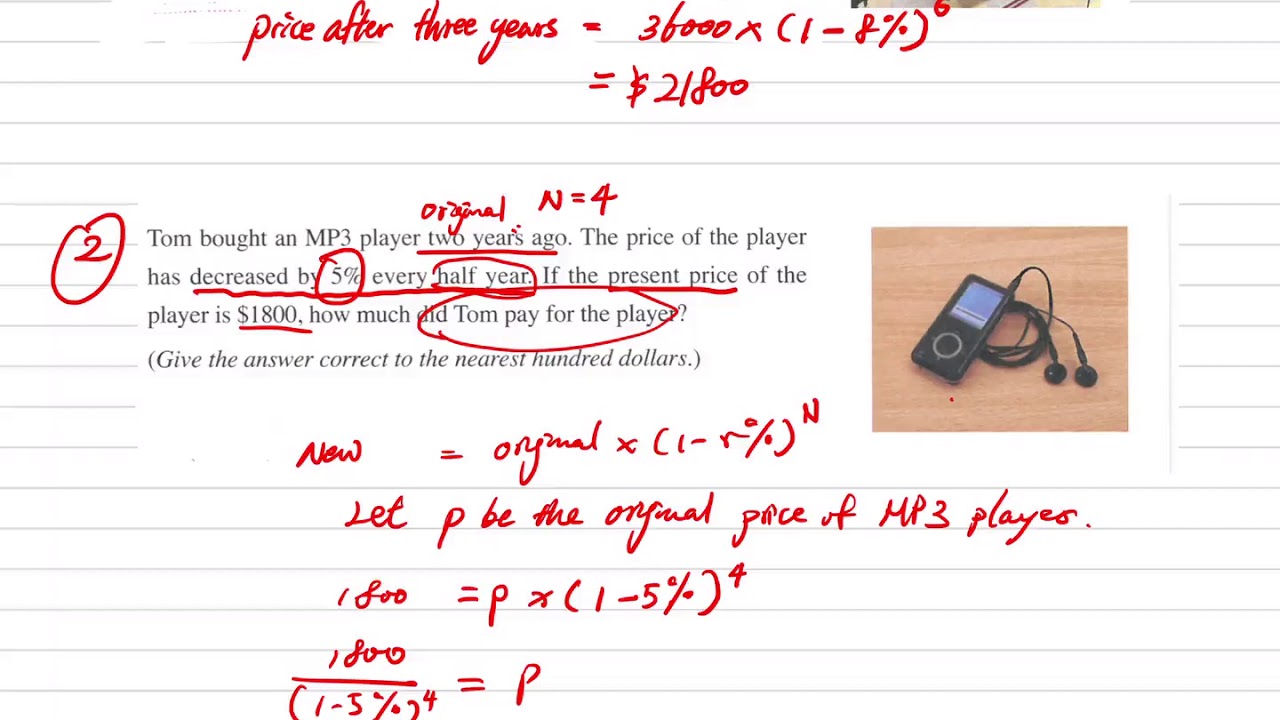 price after three years = 36000 × (1 - 8%)⁶
= $21800
original N = 4
2
Tom bought an MP3 player two years ago. The price of the player
has decreased by 5% every half year. If the present price of the
player is $1800, how much did Tom pay for the player?
(Give the answer correct to the nearest hundred dollars.)
New = original × (1 - r%)ᴺ
Let p be the original price of MP3 player.
1800 = p × (1 - 5%)⁴
1800
(1 - 5%)⁴ = p